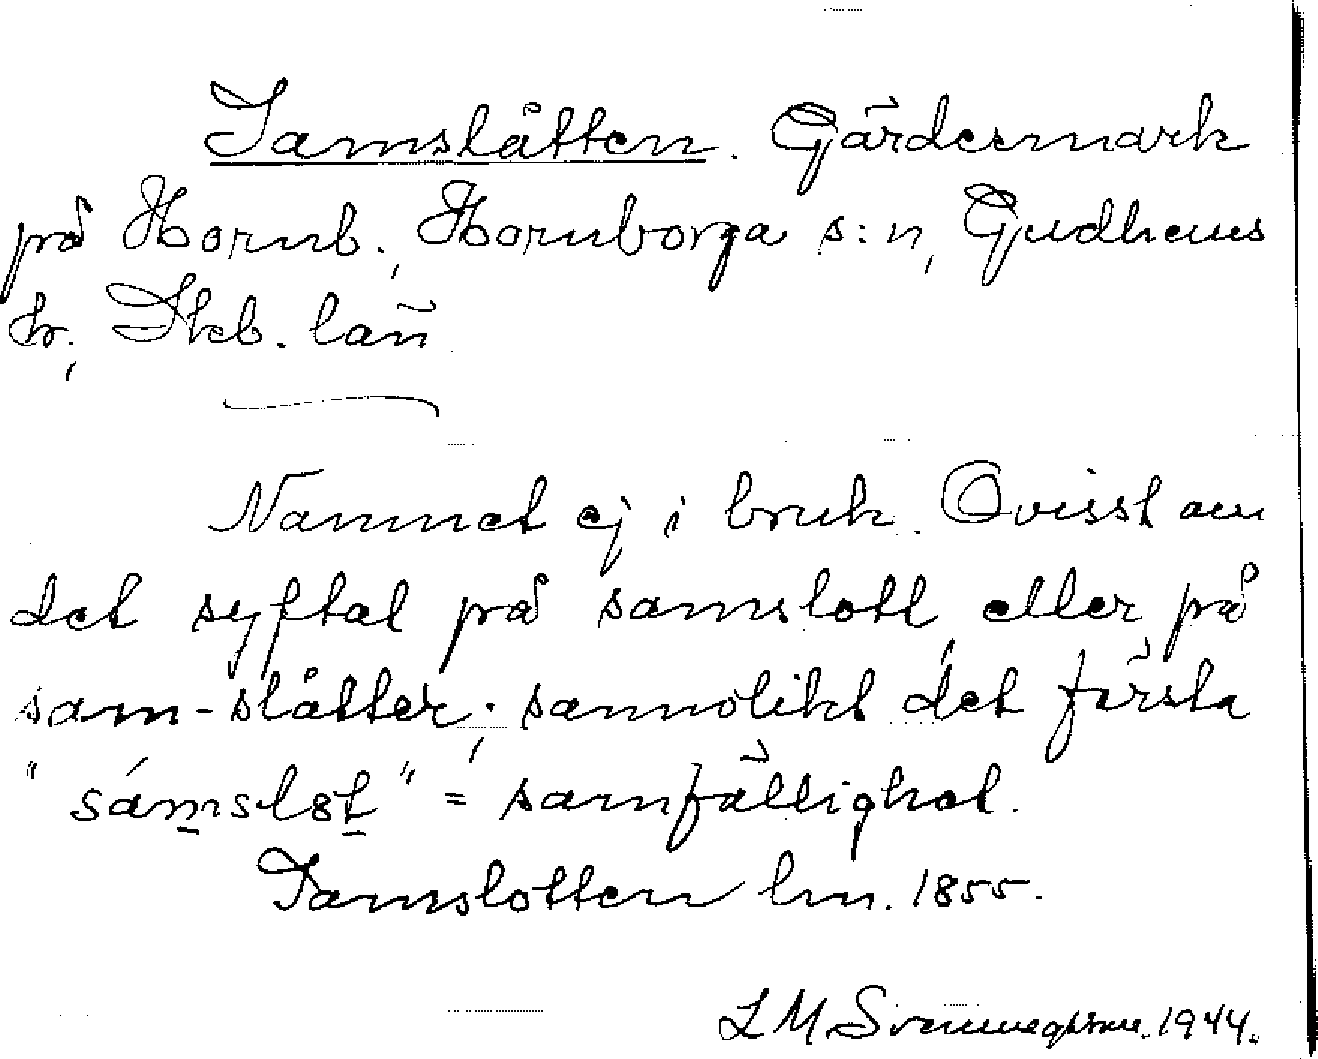 Samslåtten. Gärdesmark
på Hornb., Hornborga s:n, Gudhems
hr, Skb. län
Namnet ej i bruk. Ovisst om
det syftat på samslott, eller på
sam-slåtter; sannolikt det första
"sámslɵt" = samfällighet.
Samslotten lm. 1855.
L M Svennegårn. 1944.